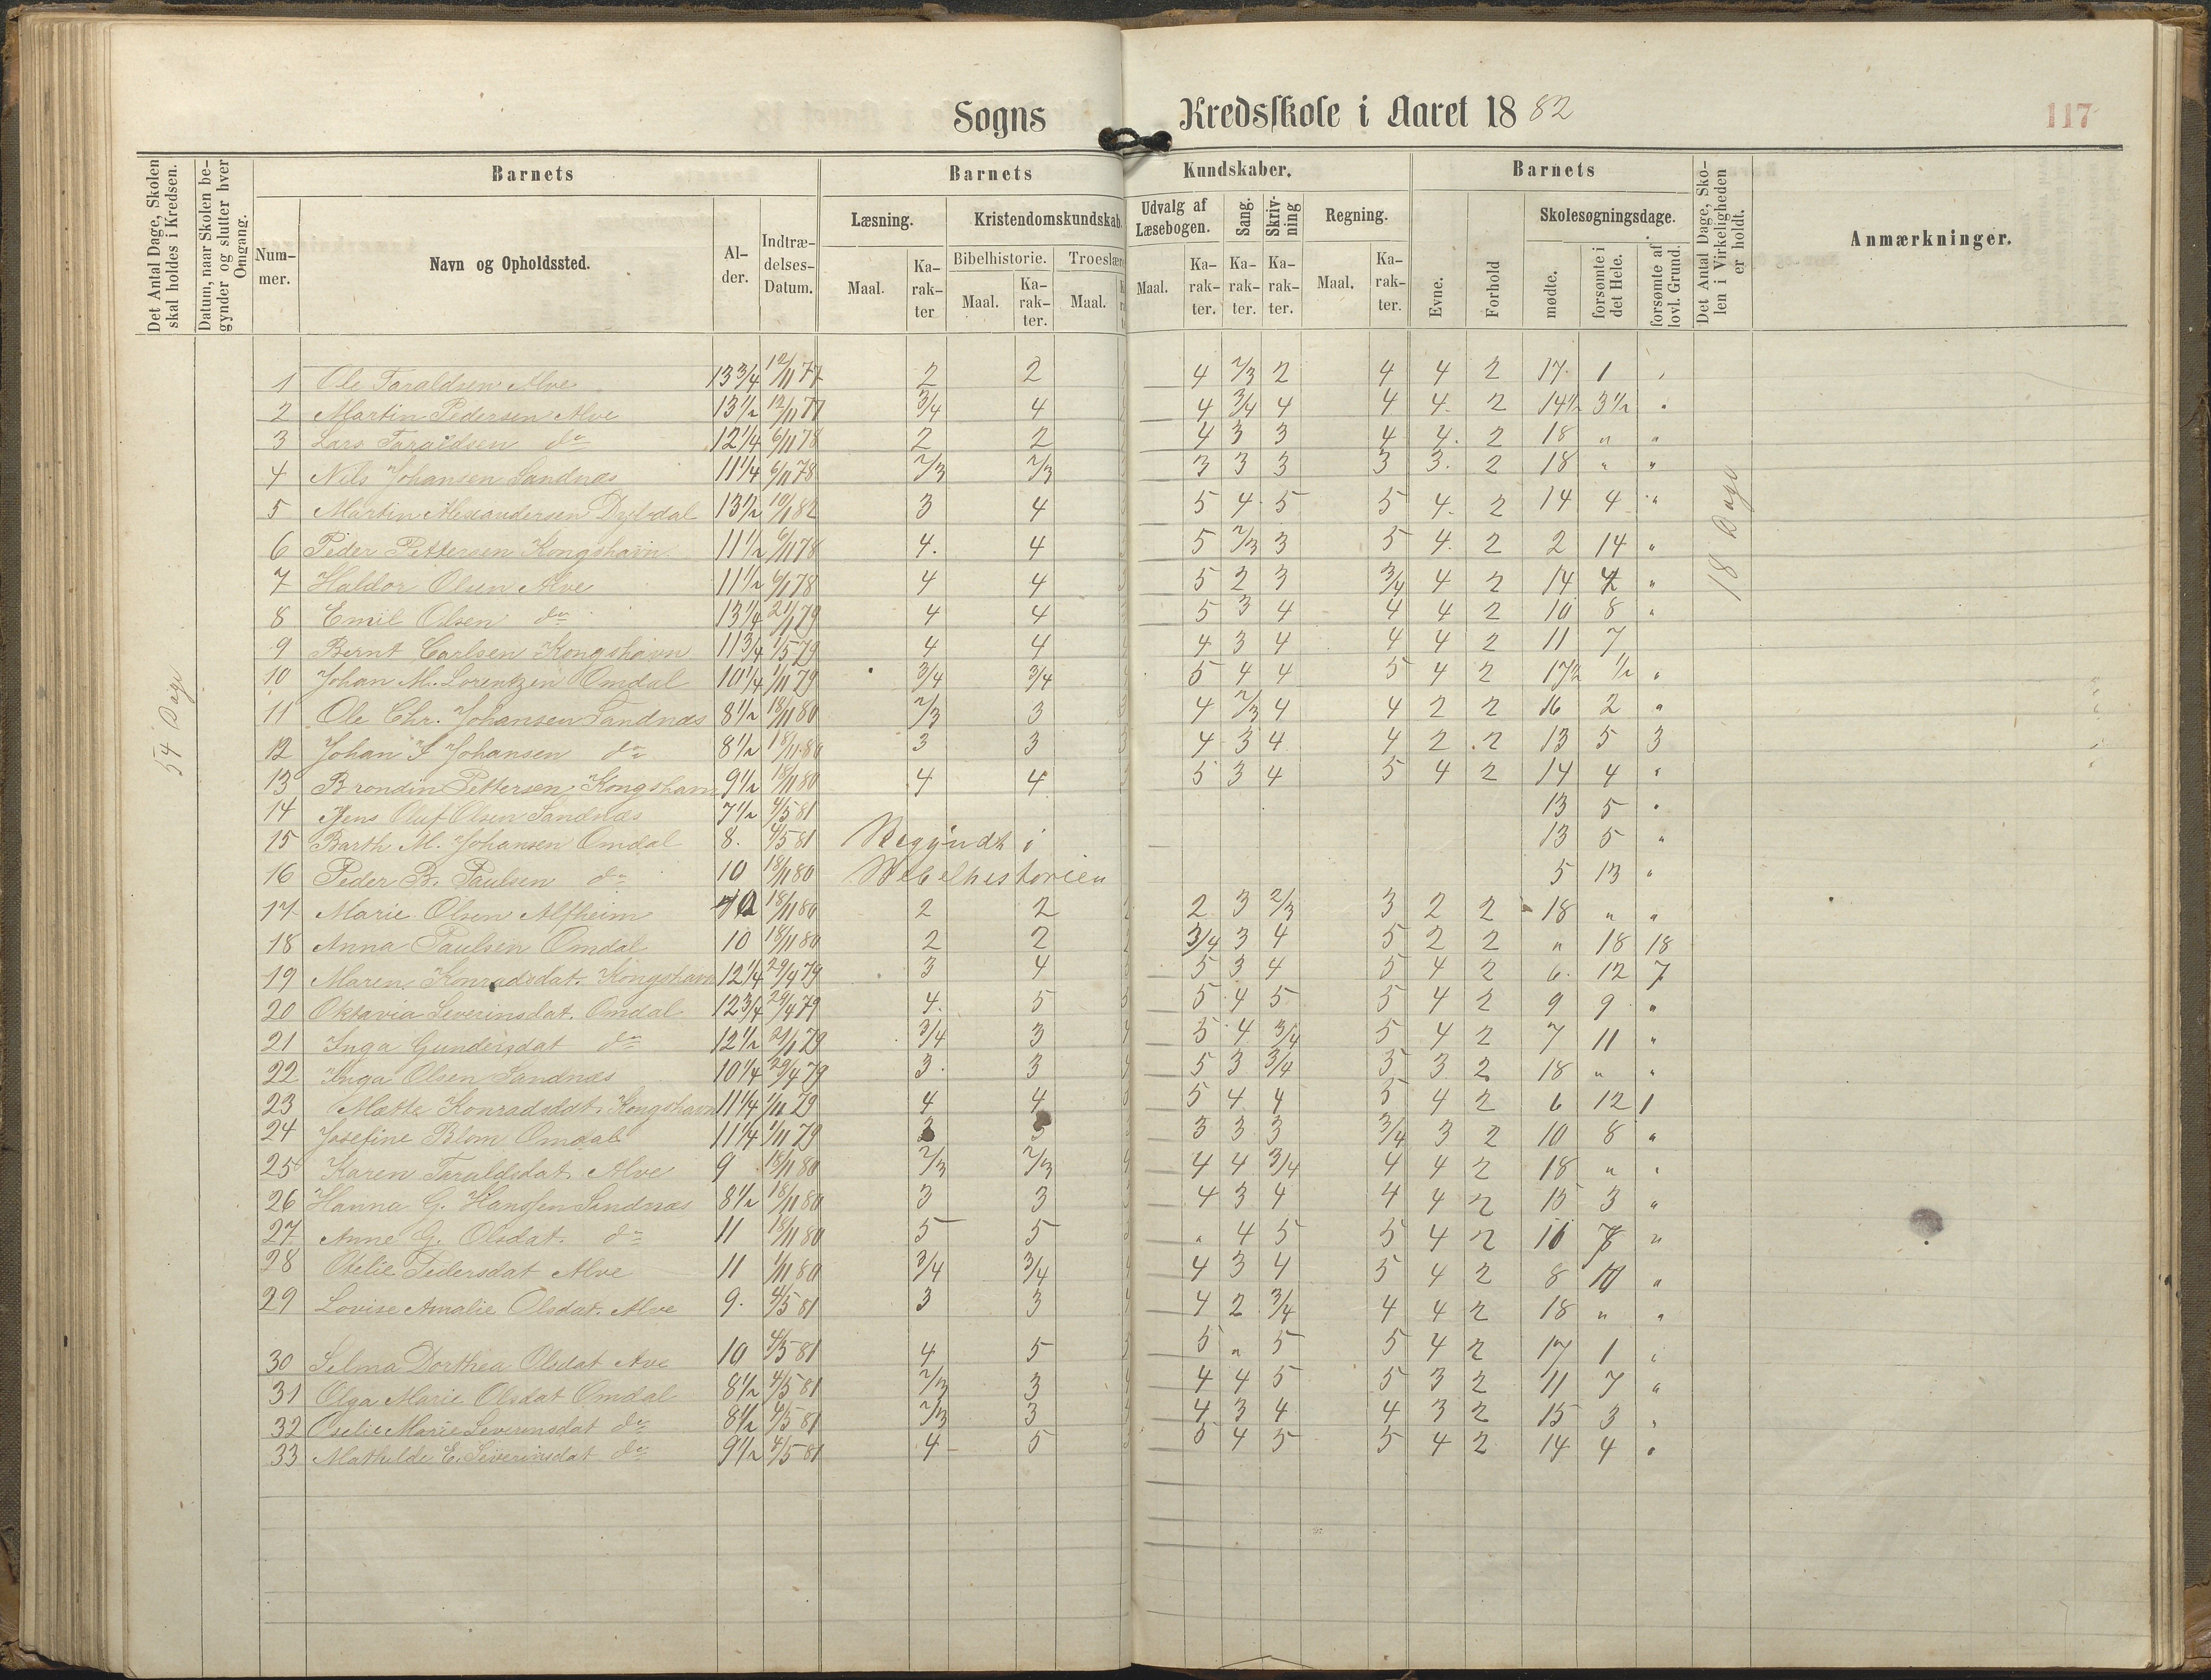 Sogns Kredsskole i Aaret 1882
117
Det Antal Dage, Skolen skal holdes i Kredsen.
Datum, naar Skolen begynder og slutter hver Omgang.
Barnets
Barnets
Kundskaber.
Barnets
Det Antal Dage, Skolen i Virkeligheden er holdt.
Anmærkninger.
Nummer.
Navn og Opholdssted.
Alder.
Indtrædelses-Datum.
Læsning.
Kristendomskundskab
Udvalg af Læsebogen.
Sang.
Skrivning
Regning.
Evne.
Forhold
Skolesøgningsdage.
Bibelhistorie.
Troeslære
Maal.
Karakter
Maal.
Karakter.
Maal.
Maal.
Karakter.
Karakter.
Karakter.
Maal.
Karakter.
mødte.
forsømte i det Hele.
forsømte af lovl. Grund.
54 Dage
18 Dage
1 Ole Taraldsen Alve 13 3/4 12/11 77 2 2 4 2/3 2 4 4 2 17 1 "
2 Martin Pedersen Alve 13 1/2 12/11 77 3/4 4 4 3/4 4 4 4 2 14 1/2 3 1/2 "
3 Lars Taraldsen do 12 1/4 6/11 78 2 2 4 3 3 4 4 2 18 " "
4 Nils Johansen Sandnæs 11 1/4 6/11 78 2/3 2/3 3 3 3 3 3 2 18 " "
5 Martin Alexandersen Dybdal 13 1/2 10/1 82 3 4 5 4 5 5 4 2 14 4 "
6 Peder Pettersen Kongshavn 11 1/2 6/11 78 4 4 5 2/3 3 5 4 2 2 14 "
7 Haldor Olsen Alve 11 1/2 6/11 78 4 4 5 2 3 3/4 4 2 14 4 "
8 Emil Olsen do 13 1/4 21/1 79 4 4 5 3 4 4 4 2 10 8 "
9 Bernt Carlsen Kongshavn 11 3/4 1/5 79 4 4 4 3 4 4 4 2 11 7
10 Johan M. Lorentzen Omdal 10 1/4 1/11 79 3/4 3/4 5 4 4 5 4 2 17 1/2 1/2 "
11 Ole Chr. Johansen Sandnæs 8 1/2 18/11 80 2/3 3 4 2/3 4 4 2 2 16 2 "
12 Johan Johansen do 8 1/2 18/11 80 3 3 4 3 4 4 2 2 13 5 3
13 Brondin Pettersen Kongshavn 9 1/2 18/11 80 4 4 5 3 4 5 4 2 14 4 "
14 Jens Oluf Olsen Sandnæs 7 1/2 4/5 81 13 5 "
15 Barth M. Johansen Omdal 8 4/5 81 Begyndt i 13 5 "
16 Peder B. Paulsen do 10 18/11 80 Bibelhistorien 5 13 "
17 Marie Olsen Alfheim 10 18/11 80 2 2 2 3 2/3 3 2 2 18 " "
18 Anna Paulsen Omdal 10 18/11 80 2 2 3/4 3 4 5 2 2 " 18 18
19 Maren Konradsdat. Kongshavn 12 1/4 29/4 79 3 4 5 3 4 5 4 2 6 12 7
20 Oktavia Severinsdat. Omdal 12 3/4 29/4 79 4 5 5 4 5 5 4 2 9 9 "
21 Inga Gundersdat do 12 1/2 21/1 79 3/4 3 5 4 3/4 5 4 2 7 11 "
22 Inga Olsen Sandnæs 10 1/4 29/4 79 3 3 5 3 3/4 5 3 2 18 " "
23 Mætte Konradsdat. Kongshavn 11 1/4 1/11 79 4 4 5 4 4 5 4 2 6 12 1
24 Josefine Blom Omdal 11 1/4 1/11 79 3 3 3 3 3/4 3 2 10 8 "
25 Karen Taraldsdat. Alve 9 18/11 80 2/3 2/3 4 4 3/4 4 4 2 18 " "
26 Hanna G. Hansen Sandnæs 8 1/2 18/11 80 3 3 4 3 4 4 4 2 15 3 "
27 Anne G. Olsdat. do 11 18/11 80 5 5 " 4 5 5 4 2 "
28 Otelie Pedersdat Alve 11 1/11 80 3/4 3/4 4 3 4 5 4 2 8 10 "
29 Lovise Amalie Olsdat. Alve 9 4/5 81 3 3 4 2 3/4 4 4 2 18 " "
30 Selma Dorthea Olsdat Ave 10 4/5 81 4 5 5 " 5 5 4 2 17 1 "
31 Olga Marie Olsdat Omdal 8 1/2 4/5 81 2/3 3 4 4 5 5 3 2 11 7 "
32 Marie Severinsdat do 8 1/2 4/5 81 2/3 3 4 3 4 4 3 2 15 3 "
33 Mathilde E. Severinsdat do 9 1/2 4/5 81 4 5 5 4 5 5 4 2 14 4 "